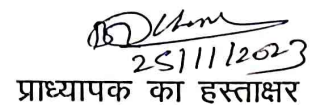 25/11/2023
प्राध्यापक का हस्ताक्षर